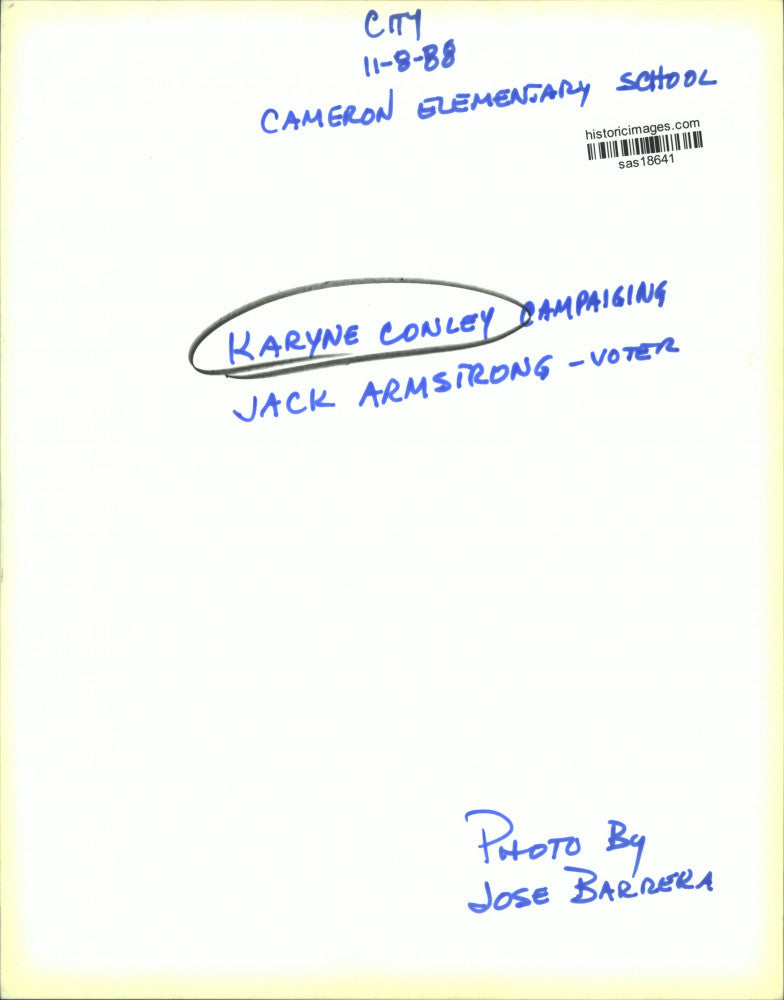 CITY
11-8-88
CAMERON ELEMENTARY SCHOOL
historicimages.com
sas18641
KARYNE CONLEY CAMPAIGING
JACK ARMSTRONG - VOTER
PHOTO BY
JOSE BARRERA